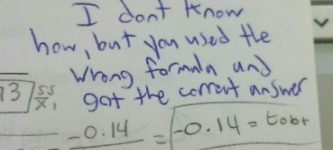 I dont know
how, but you used the
wrong formula and
got the correct answer
13
-0.14 = -0.14 = tobt